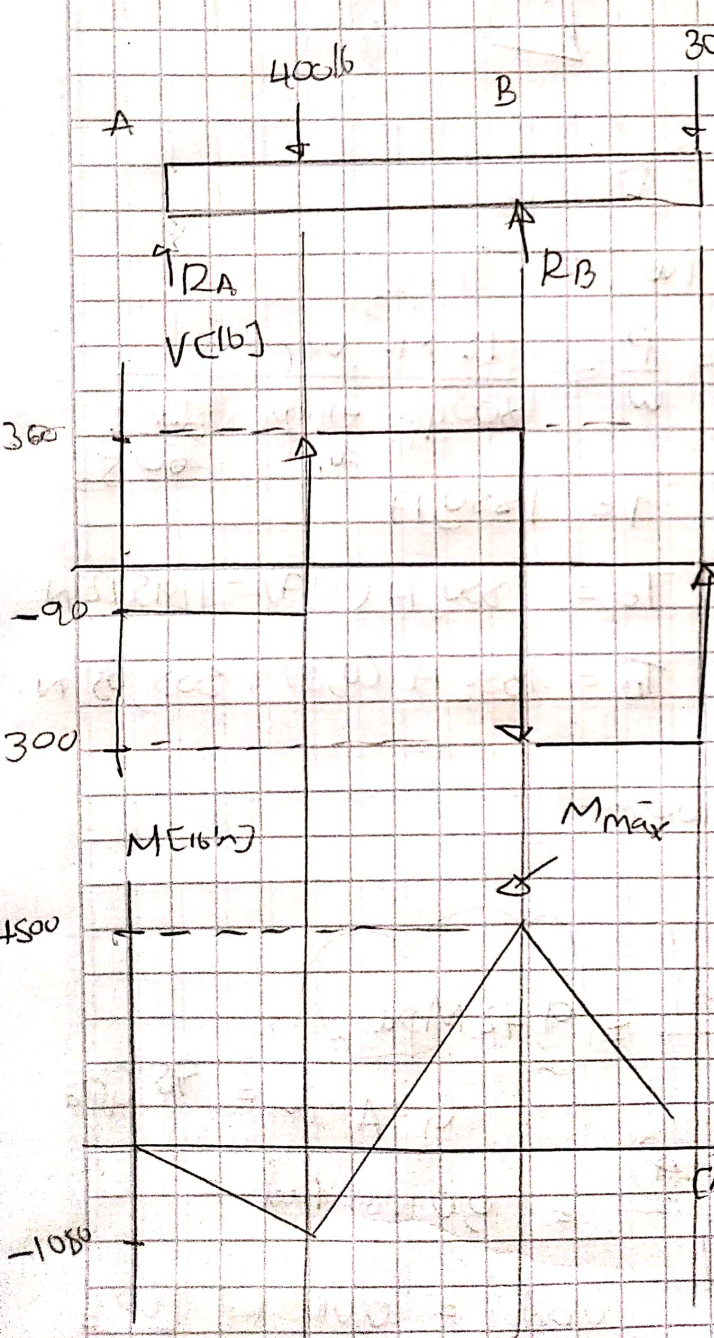 400lb
30
A
B
RA
RB
V[lb]
360
-90
300
M[lb in]
Mmáx
4500
-1080